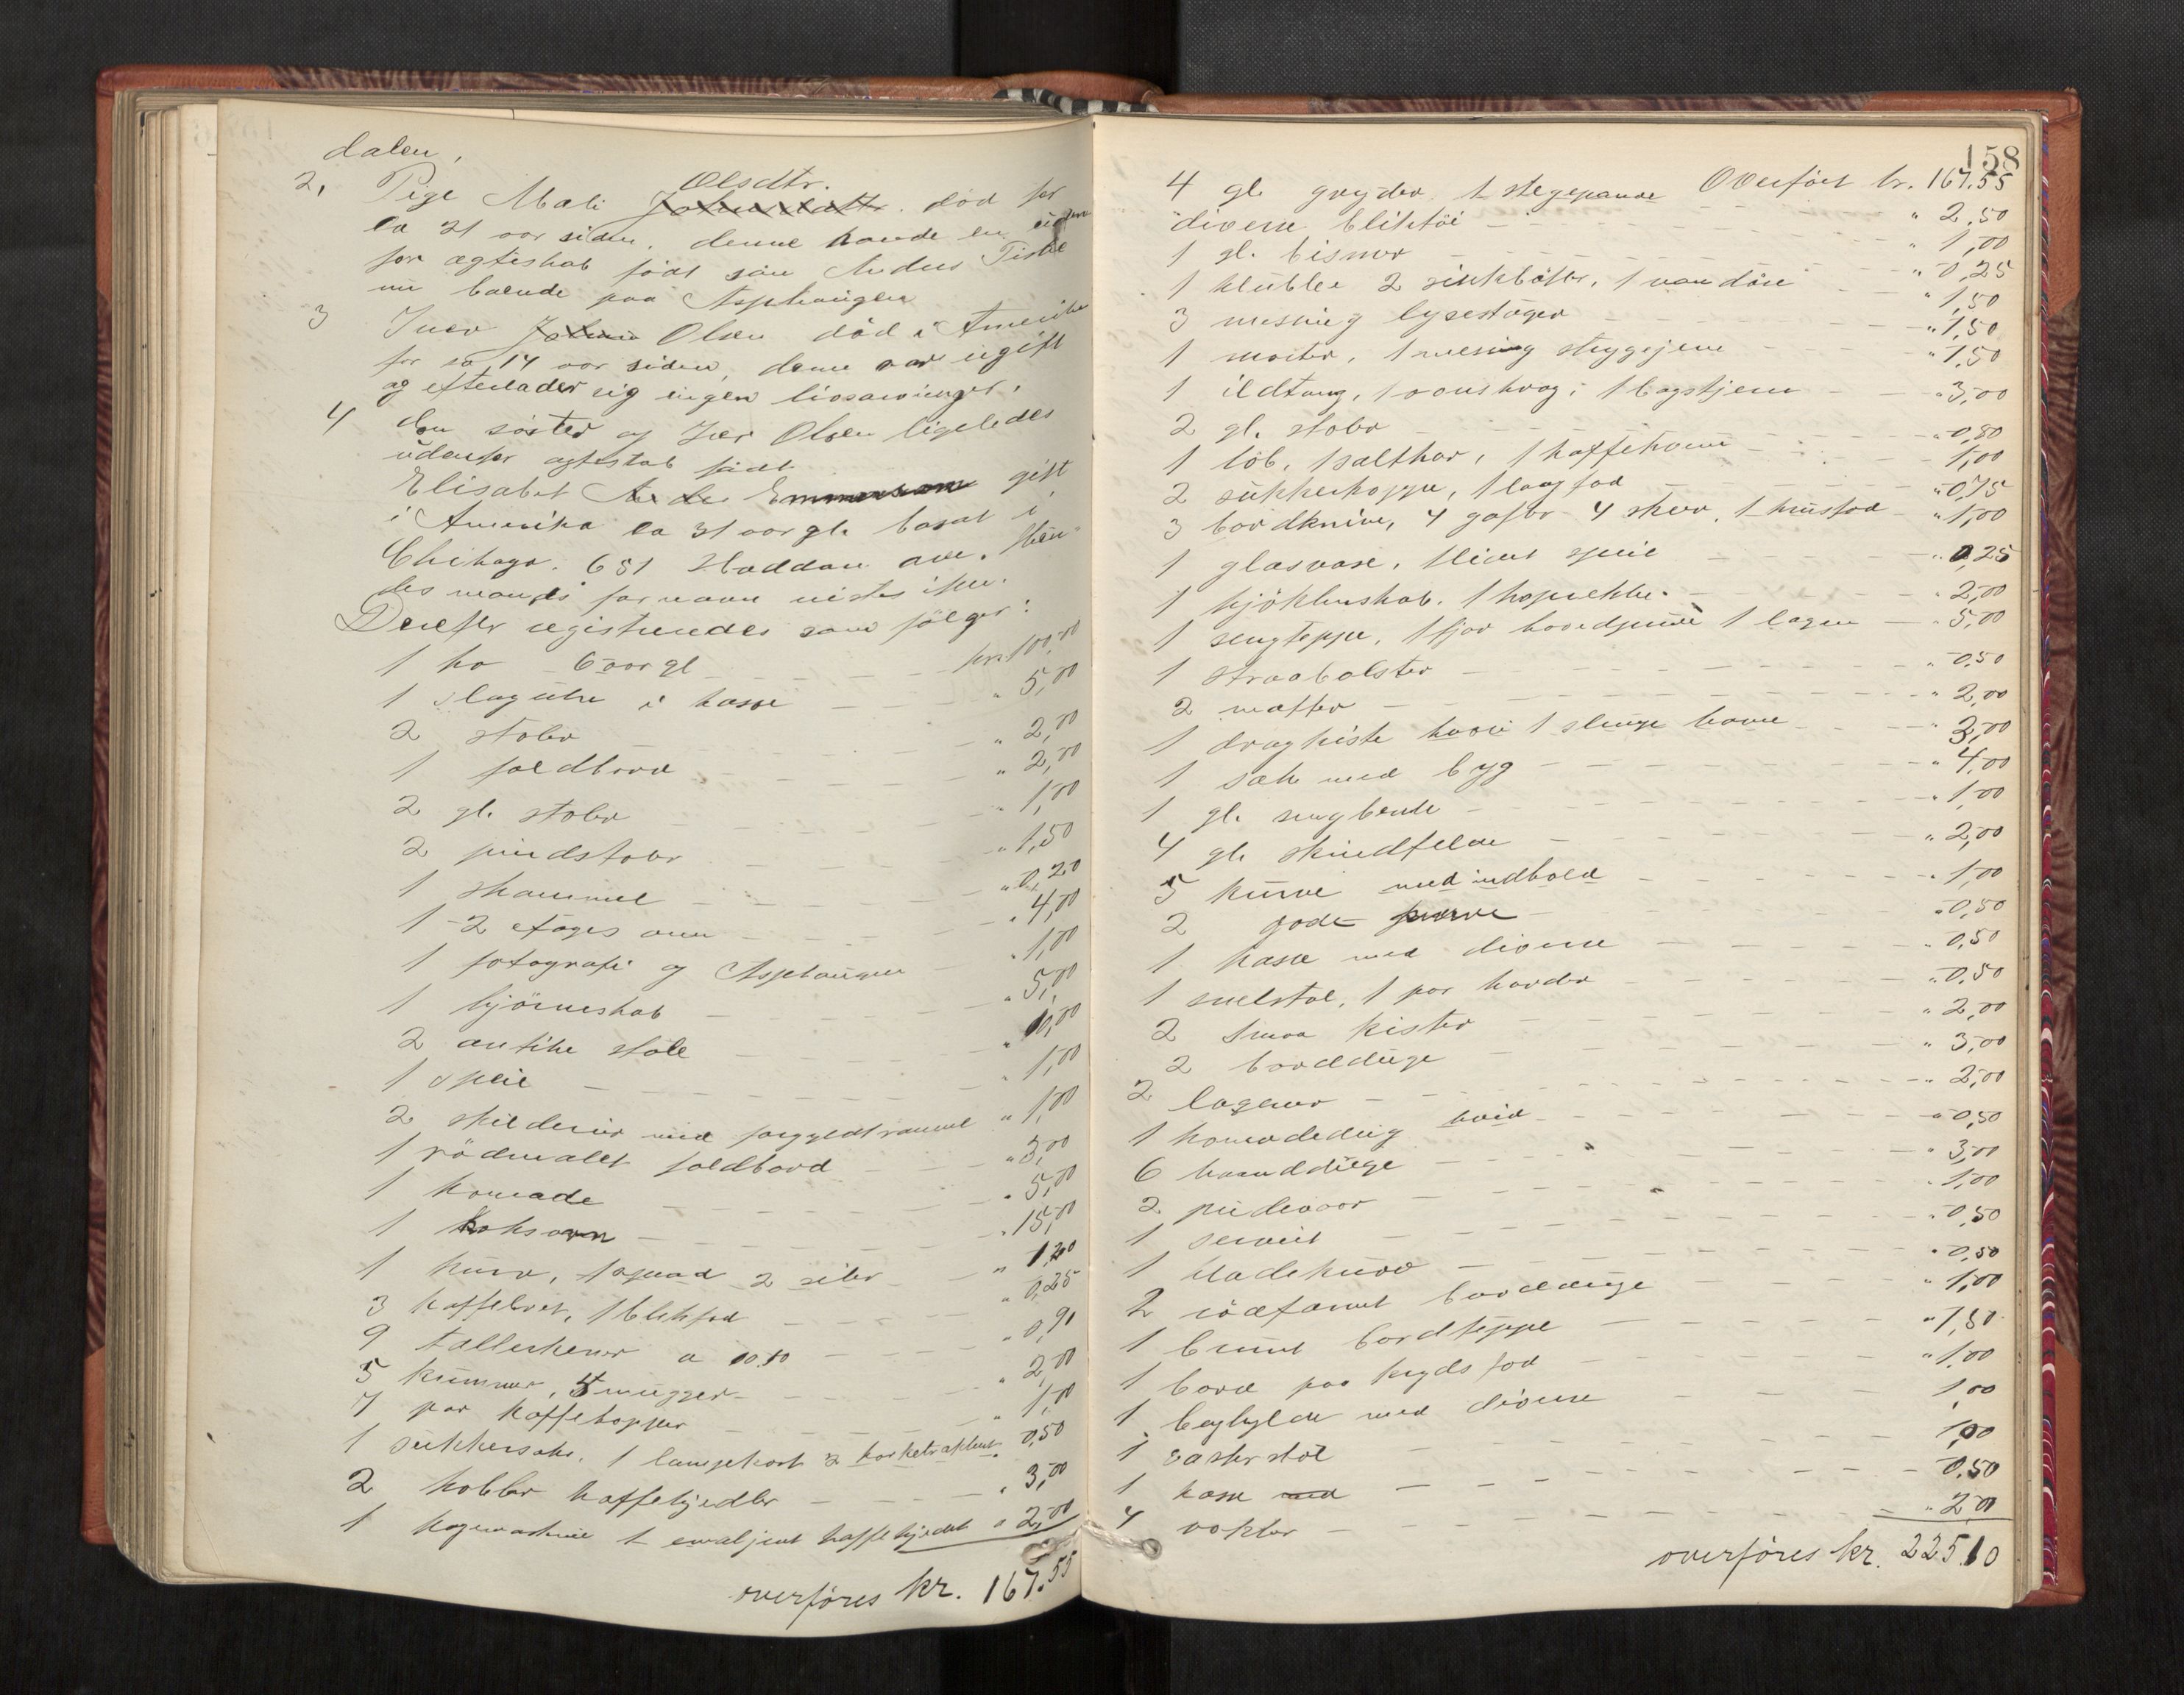 dalen,
Olsdtr.
2, Pige Mali Johnsdattr. død for
ca 21 aar siden. denne havde en uden
for ægteskab født søn Anders Fiske
nu boende paa Asphaugen
3 Iver Johns Olsen død i Amerika
for ca 14 aar siden, denne var ugift
og efterlader sig ingen livsarvinger.
4 den søster og Iver Olsen ligeledes
udenfor ægteskab født
Elisabet Ande Emmerson gift
i Amerika ca 31 aar gl. bosat i
Chikago. 651 Haddan ave. Hen-
des mands fornavn vistes ikke.
Derefter registreredes som følger:
1 ko 6 aar gl. kr. 100,00
1 slaguhr i kasse " 5,00
2 stoler " 2,00
1 foldbord " 2,00
2 gl. stoler " 1,00
2 pindstoler " 1,50
1 skammel " 0,20
1 2 etages ovn " 4,00
1 fotografi og Asphaugen " 1,00
1 hjørneskab " 5,00
2 antike stole " 10,00
1 speil " 1,00
2 skilderier med forgyldt ramme " 1,00
1 rødmalet foldbord " 3,00
1 komade " 5,00
1 koksovn " 15,00
1 kurv, 1 spand 2 siler " 1,20
3 kaffebret, 1 blikfad " 0,25
9 tallerkener a 00.10 " 0,90
5 kummer, 4 mugger " 2,00
7 par kaffekopper " 1,00
1 sukkersaks, 1 lampekost 2 korketrækkere " 0,50
2 kobber kaffekjedler " 3,00
1 kogemaskine 1 emaljert kaffekjedel " 2,00
overføres kr. 167.55
158
Overført kr. 167.55
4 gl. gryder 1 stegepande " 2,50
diverse bliktøi " 1,00
1 gl. bismer " 0,25
1 klubbe 2 sinkbøtter, 1 vandøse " 1,50
3 messing lysestager " 1,50
1 morter, 1 messing strygejern " 1,50
1 ildtang, 1 ovnskrog, 1 bagstjern " 3,00
2 gl. stoler " 0,80
1 løb, 1 saltkar, 1 kaffekanne 1,00
2 sukkerkopper, 1 laag fad " 0,75
3 bordknive, 4 gafler 4 skeer, 1 krusfad " 1,00
1 glasvase, 1 lidet speil " 0,25
1 kjøkkenskab. 1 koprekke. " 2,00
1 sengteppe, 1 fjær hovedpude 1 lagen " 5,00
1 straabolster " 0,50
2 matter " 2,00
1 dragkiste hvori 1 slingekanne 3,00
1 sæk med byg " 4,00
1 gl. sengbenk " 1,00
4 gl. skindfelder " 2,00
5 kurve med indhold " 1,00
2 gode kurve " 0,50
1 kasse med diverse " 0,50
1 snelstol, 1 par karder " 0,50
2 smaa kister " 2,00
2 bordduge " 3,00
2 lagener " 2,00
1 komodedug hvid " 0,50
6 haandduge " 3,00
2 pudevaar " 1,00
1 serviet " 0,50
1 kladekurv " 0,50
2 rødfarvet bordduge " 1,00
1 brunt bordteppe " 1,50
1 bord paa krydsfod " 1,00
1 boghylde med diverse 1,00
1 Easter stol 1,00
1 kasse med 0,50
4 vokter " 2,00
overføres kr. 225.10